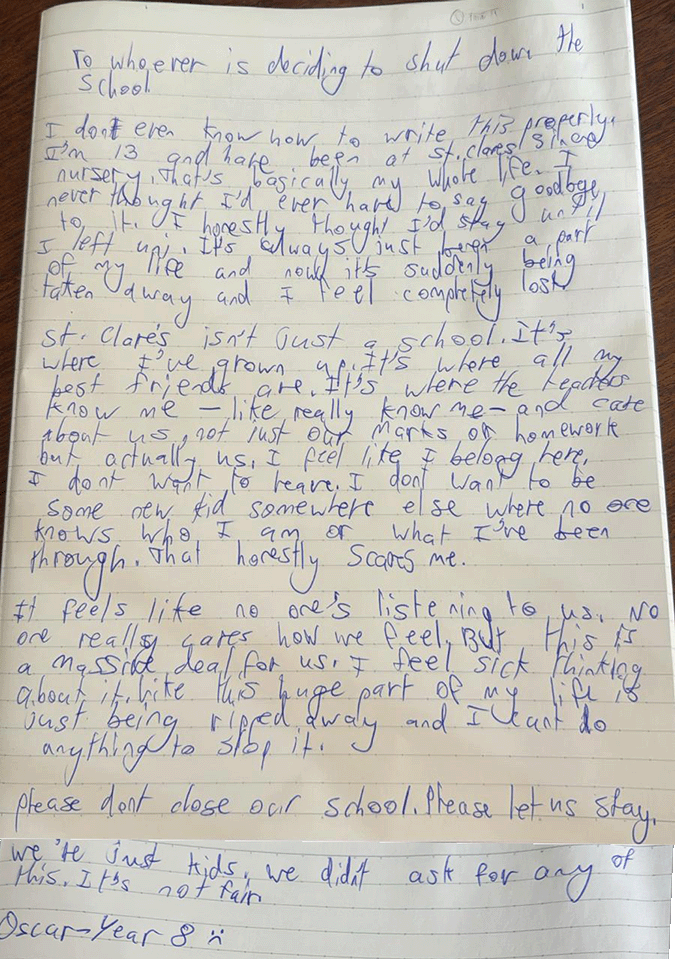 To whoever is deciding to shut down the
School
I dont even know how to write this properly.
I'm 13 and have been at st.clares since
nursery. That's basically my whole life. I
never thought I'd ever have to say goodbye
to it. I honestly thought I'd stay until
I left uni. It's always just been a part
of my life and now its suddenly being
taken away and I feel completely lost.
St. Clare's isn't just a school. It's
where I've grown up. It's where all my
best friends are. It's where the teachers
know me – like really know me – and care
about us, not just our marks or homework
but actually us. I feel like I belong here.
I dont want to leave. I dont want to be
some new kid somewhere else where no one
knows who I am or what I've been
through. That honestly scares me.
It feels like no one's listening to us. No
one really cares how we feel, But this is
a massive deal for us. I feel sick thinking
about it. Like this huge part of my life is
just being ripped away and I cant do
anything to stop it.
please dont close our school. Please let us stay.
we're just kids. we didn't ask for any of
this. It's not fair.
Oscar – Year 8 :(